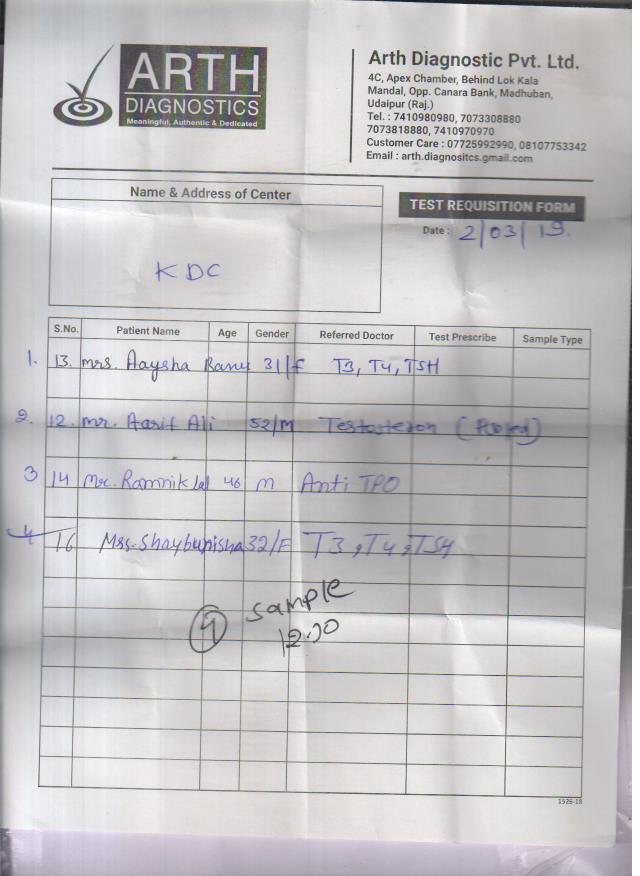 ARTH
DIAGNOSTICS
Meaningful, Authentic & Dedicated
Arth Diagnostic Pvt. Ltd.
4C, Apex Chamber, Behind Lok Kala
Mandal, Opp. Canara Bank, Madhuban,
Udaipur (Raj.)
Tel. : 7410980980, 7073308880
7073818880, 7410970970
Customer Care : 07725992990, 08107753342
Email : arth.diagnositcs.gmail.com
Name & Address of Center
KDC
TEST REQUISITION FORM
Date : 2/03/19.
S.No. Patient Name Age Gender Referred Doctor Test Prescribe Sample Type
1. 13. mrs. Aaysha Banu 31/f T3, T4, TSH
2. 12. mr. Aarif Ali 52/m Testosteron (Pooled)
3 14 Mr. Ramnik lal 46 m Anti TPO
4 16 Mrs. Shaybunisha 32/F T3, T4, TSH
4 Sample
12:00
1526-18